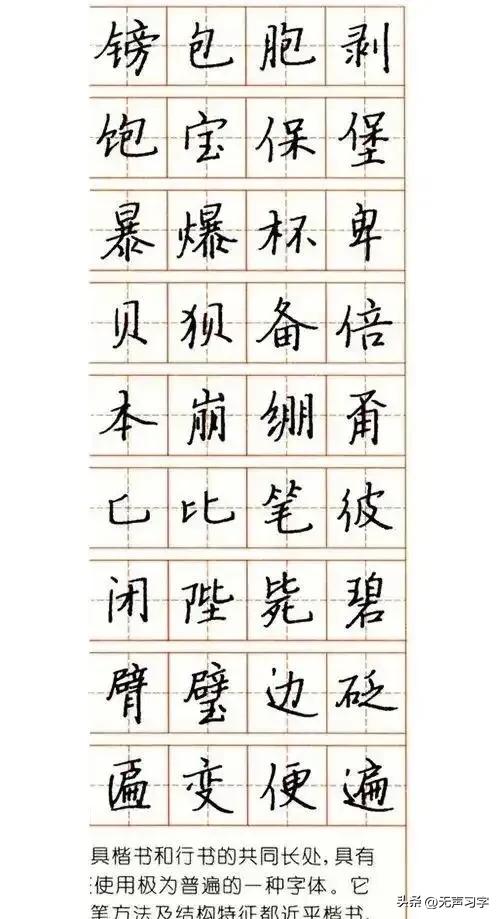 镑包胞剥
饱宝保堡
暴爆杯卑
贝狈备倍
本崩绷甭
匕比笔彼
闭陛毙碧
臂璧边砭
匾变便遍
具楷书和行书的共同长处,具有
使用极为普遍的一种字体。它
笔方法及结构特征都近乎楷书,
头条 @无声习字